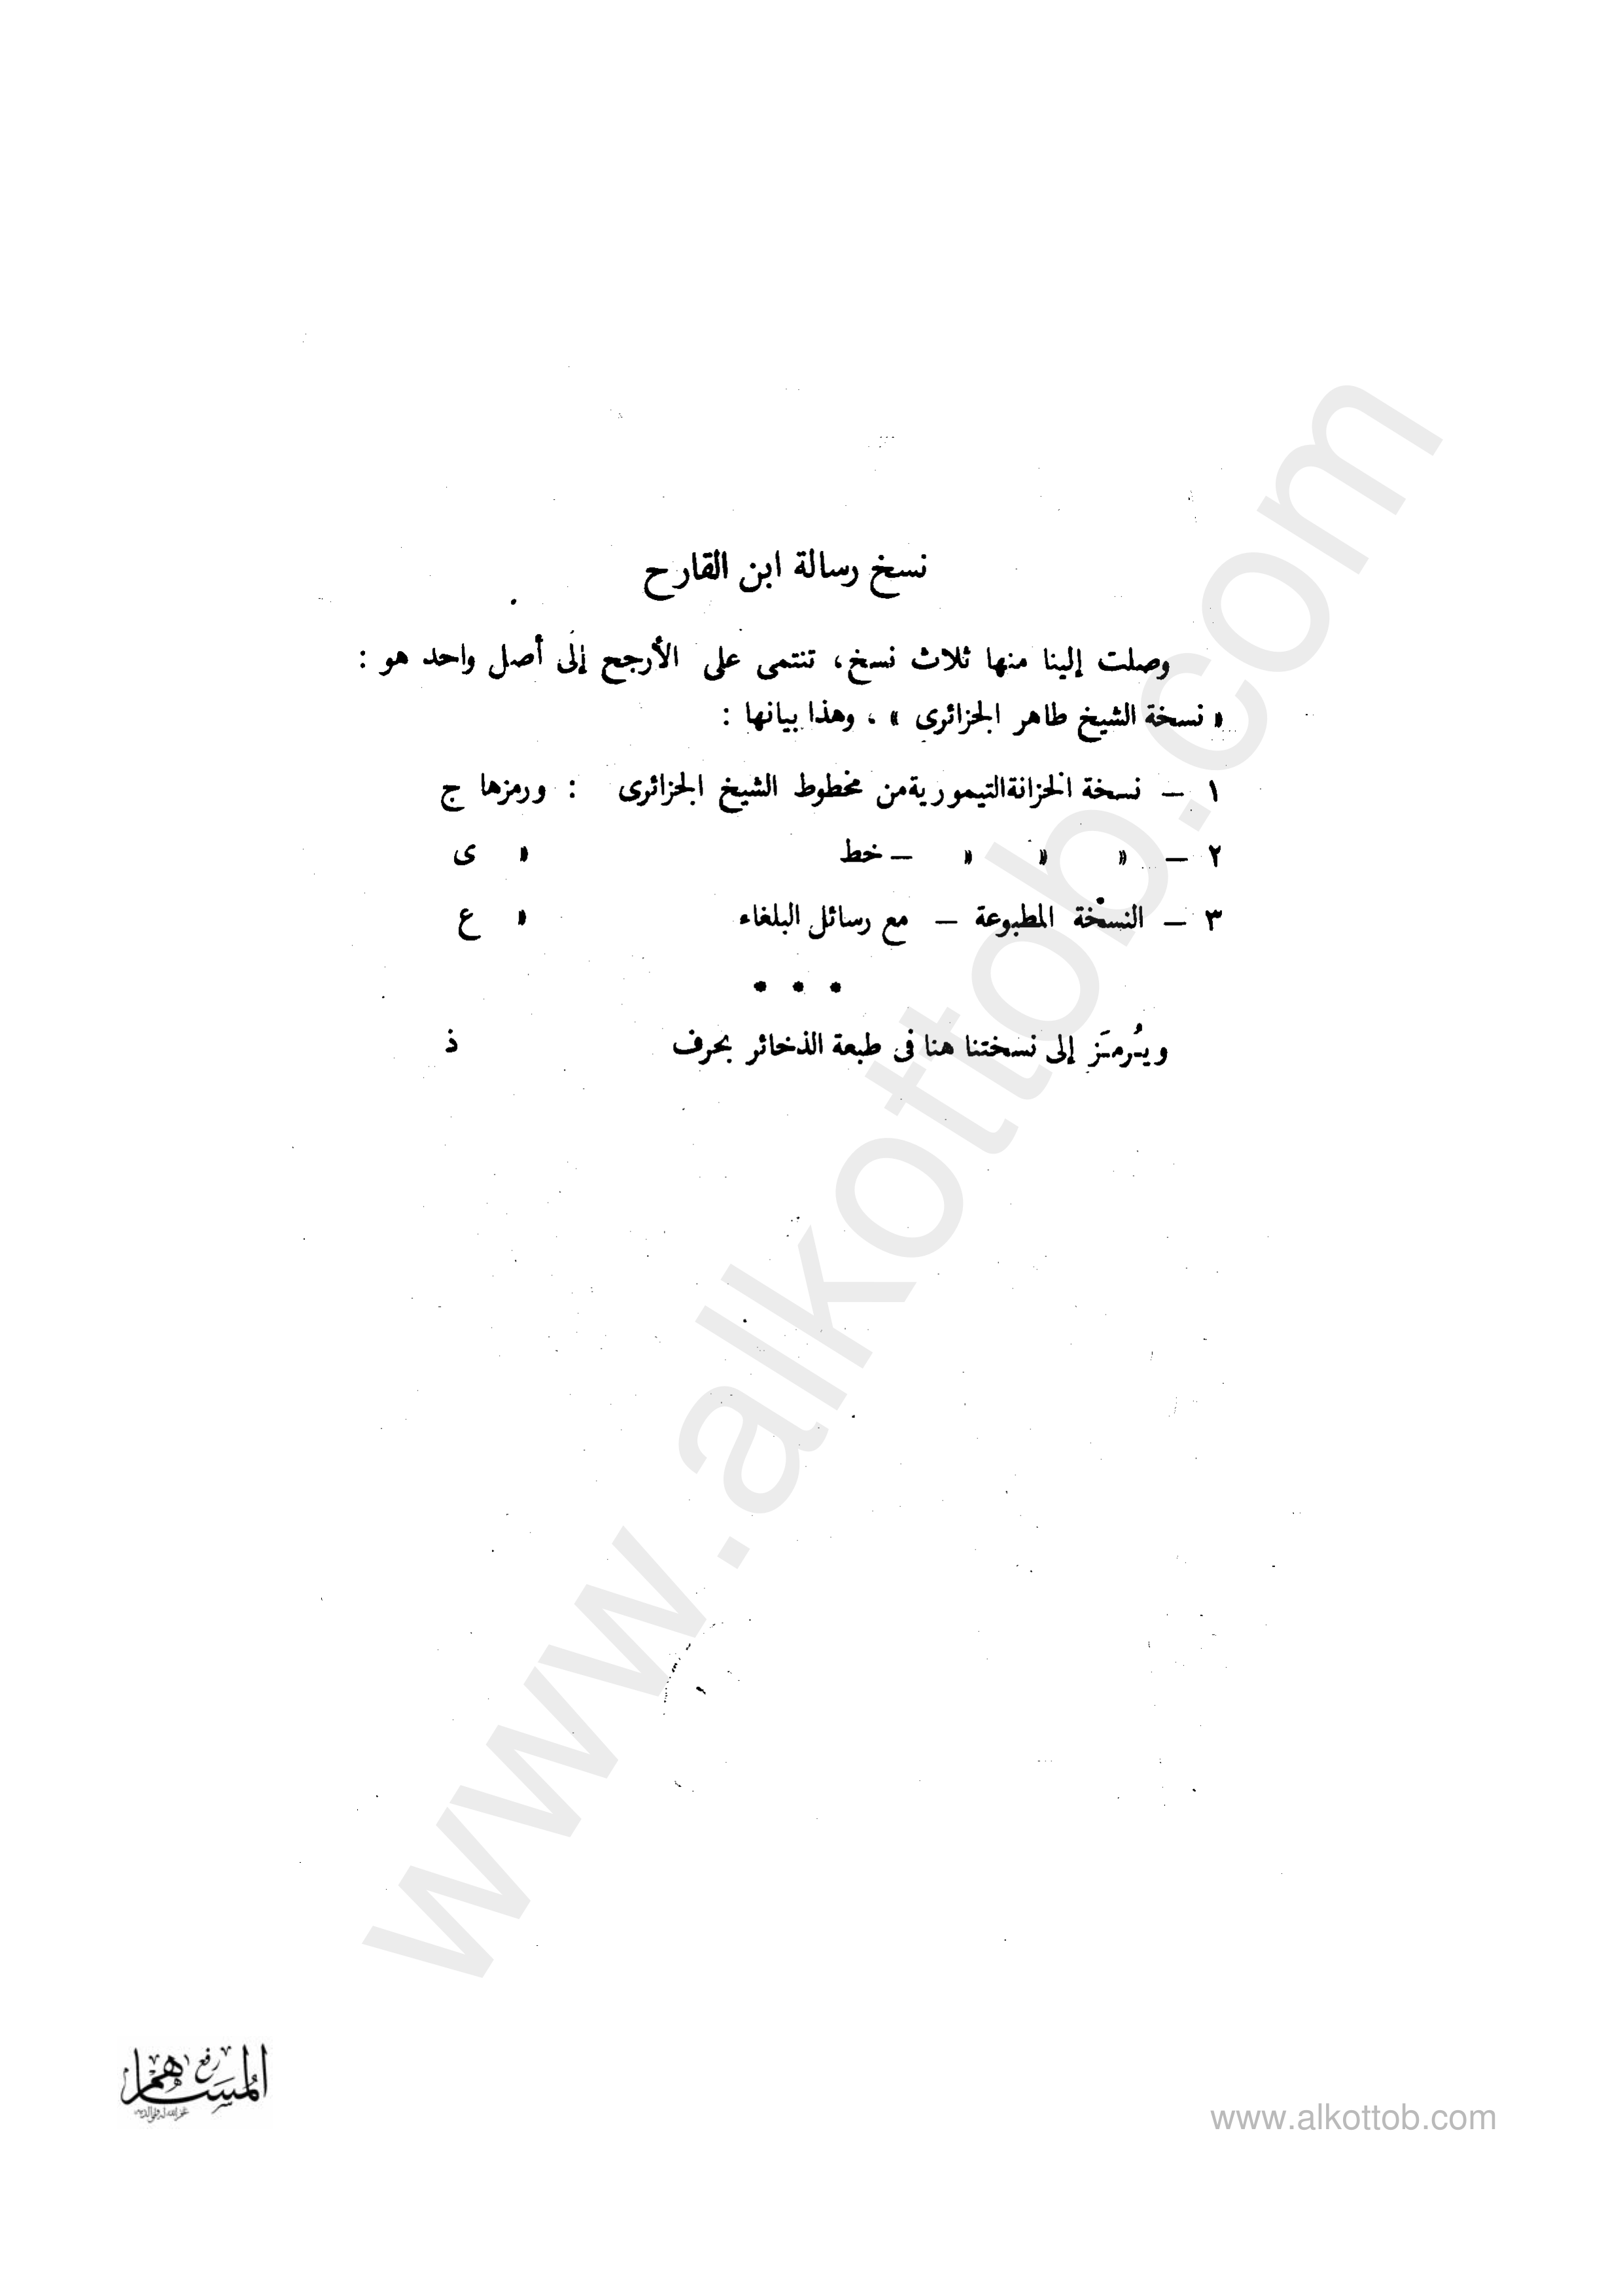 نسخ رسالة ابن القارح
وصلت إلينا منها ثلاث نسخ، تنتمى على الأرجح إلى أصل واحد هو :
« نسخة الشيخ طاهر الجزائرى » ، وهذا بيانها :
١ – نسخة الخزانة التيمورية من مخطوط الشيخ الجزائرى : ورمزها ج
٢ – » » » – خط » ى
٣ – النسخة المطبوعة – مع رسائل البلغاء » ع
• • •
ويُرمَز إلى نسختنا هنا فى طبعة الذخائر بحرف ذ
www.alkottob.com
رفع
المساهم
غفر الله له ولوالديه
www.alkottob.com